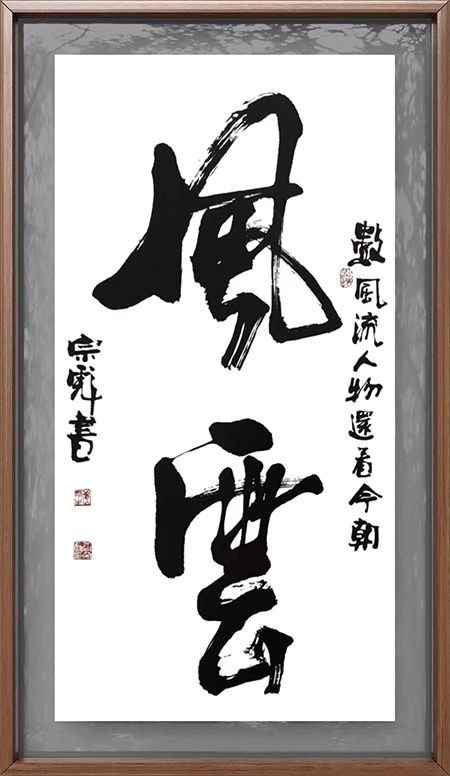 數風流人物還看今朝
風雲
宗 書